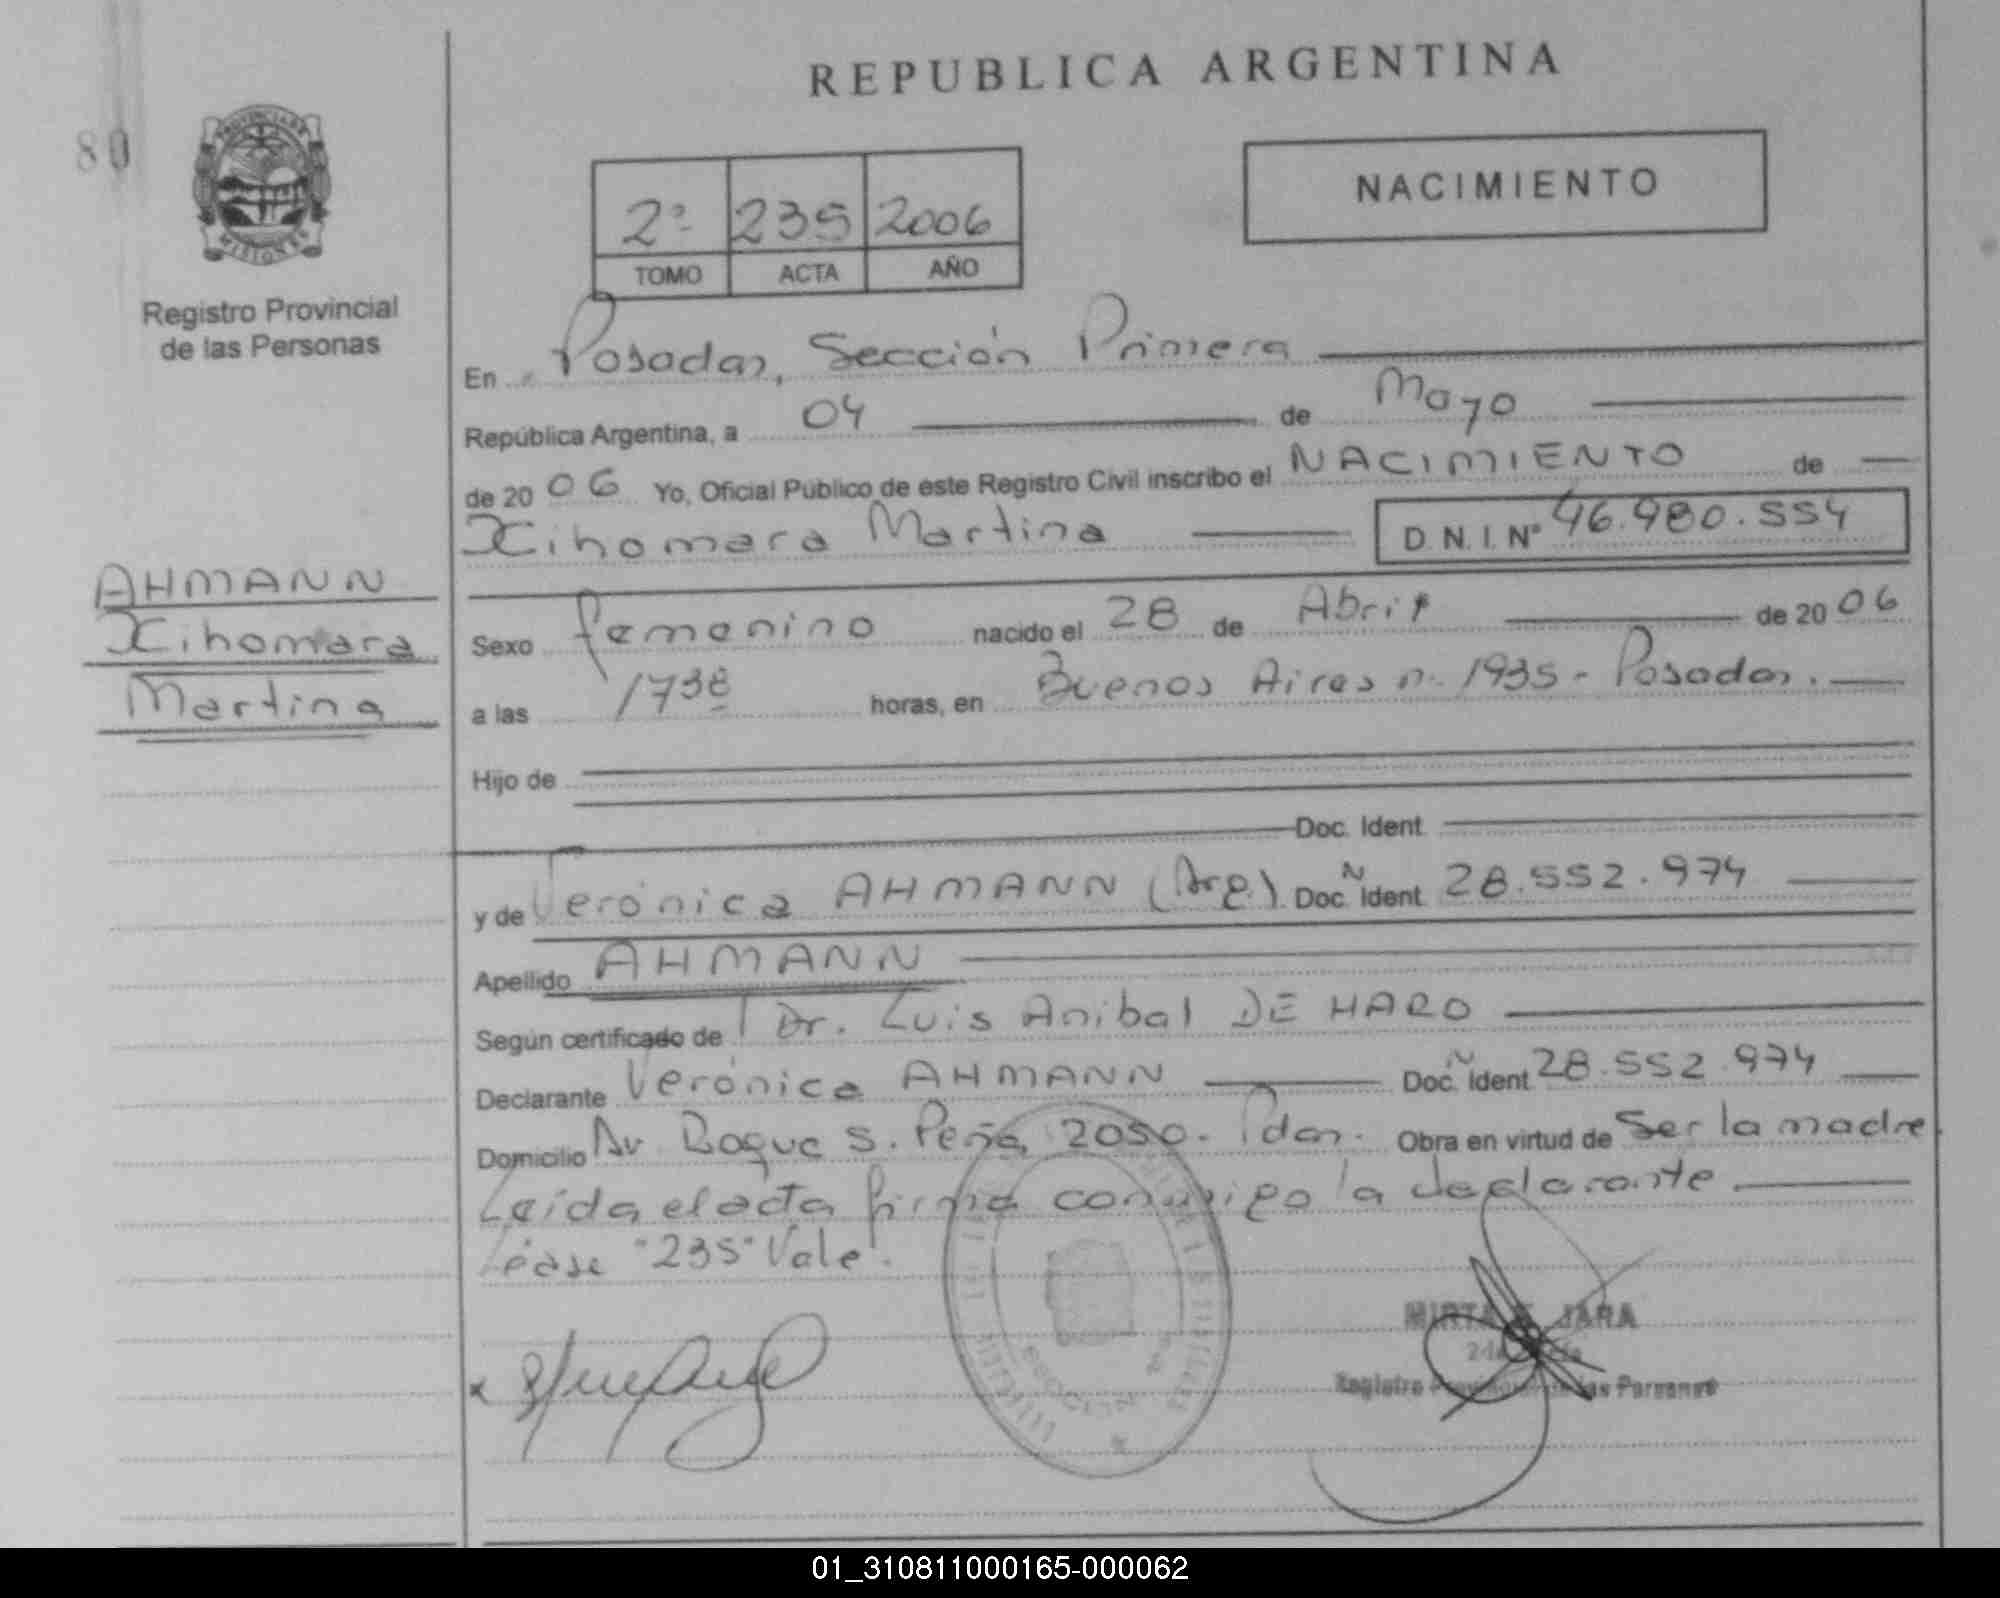 REPUBLICA ARGENTINA
80
PROVINCIA DE
MISIONES
Registro Provincial
de las Personas
2º 235 2006
TOMO ACTA AÑO
NACIMIENTO
En Posadas, Sección Primera
República Argentina, a 04 de Mayo
de 2006 Yo, Oficial Público de este Registro Civil inscribo el NACIMIENTO de
Xihomara Martina D.N.I. Nº 46.980.554
AHMANN
Xihomara
Martina
Sexo femenino nacido el 28 de Abril de 2006
a las 1738 horas, en Buenos Aires n. 1935 - Posadas.
Hijo de
Doc. Ident.
y de Verónica AHMANN (Arg.) Doc. N Ident. 28.552.974
Apellido AHMANN
Según certificado de Dr. Luis Anibal DE HARO
Declarante Verónica AHMANN Doc. Ñ Ident. 28.552.974
Domicilio Av Roque S. Peña 2050 - Pdas. Obra en virtud de Ser la madre
Leída el acta firma conmigo la declarante
Léase "235" Vale.
x
MIRTA JARA
Registro las Personas
01_310811000165-000062